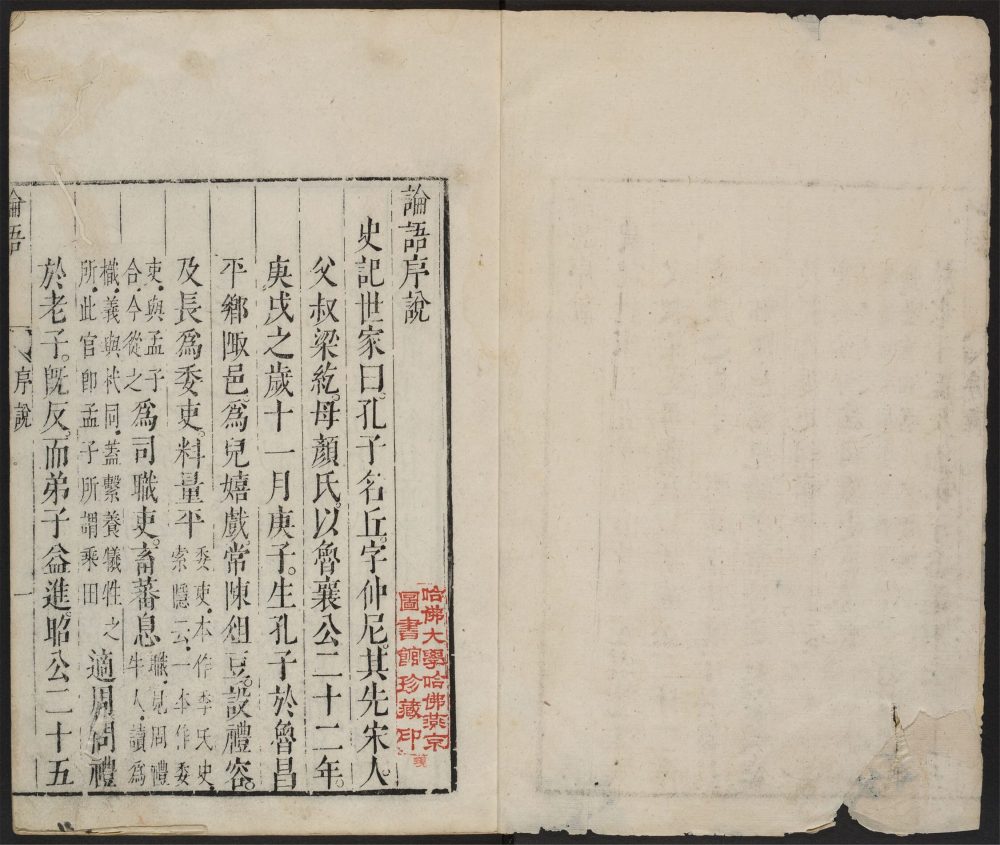 論語序說
史記世家曰孔子名丘字仲尼其先宋人
父叔梁紇母顏氏以魯襄公二十二年
庚戌之歲十一月庚子生孔子於魯昌
平鄉陬邑為兒嬉戲常陳俎豆設禮容
及長為委吏料量平委吏本作季氏史索隱云一本作委
吏與孟子合今從之為司職吏畜蕃息職見周禮牛人讀為
樴義與杙同蓋繫養犧牲之所此官即孟子所謂乘田適周問禮
於老子既反而弟子益進昭公二十五
論語
序說
一
哈佛大學哈佛燕京
圖書館珍藏印